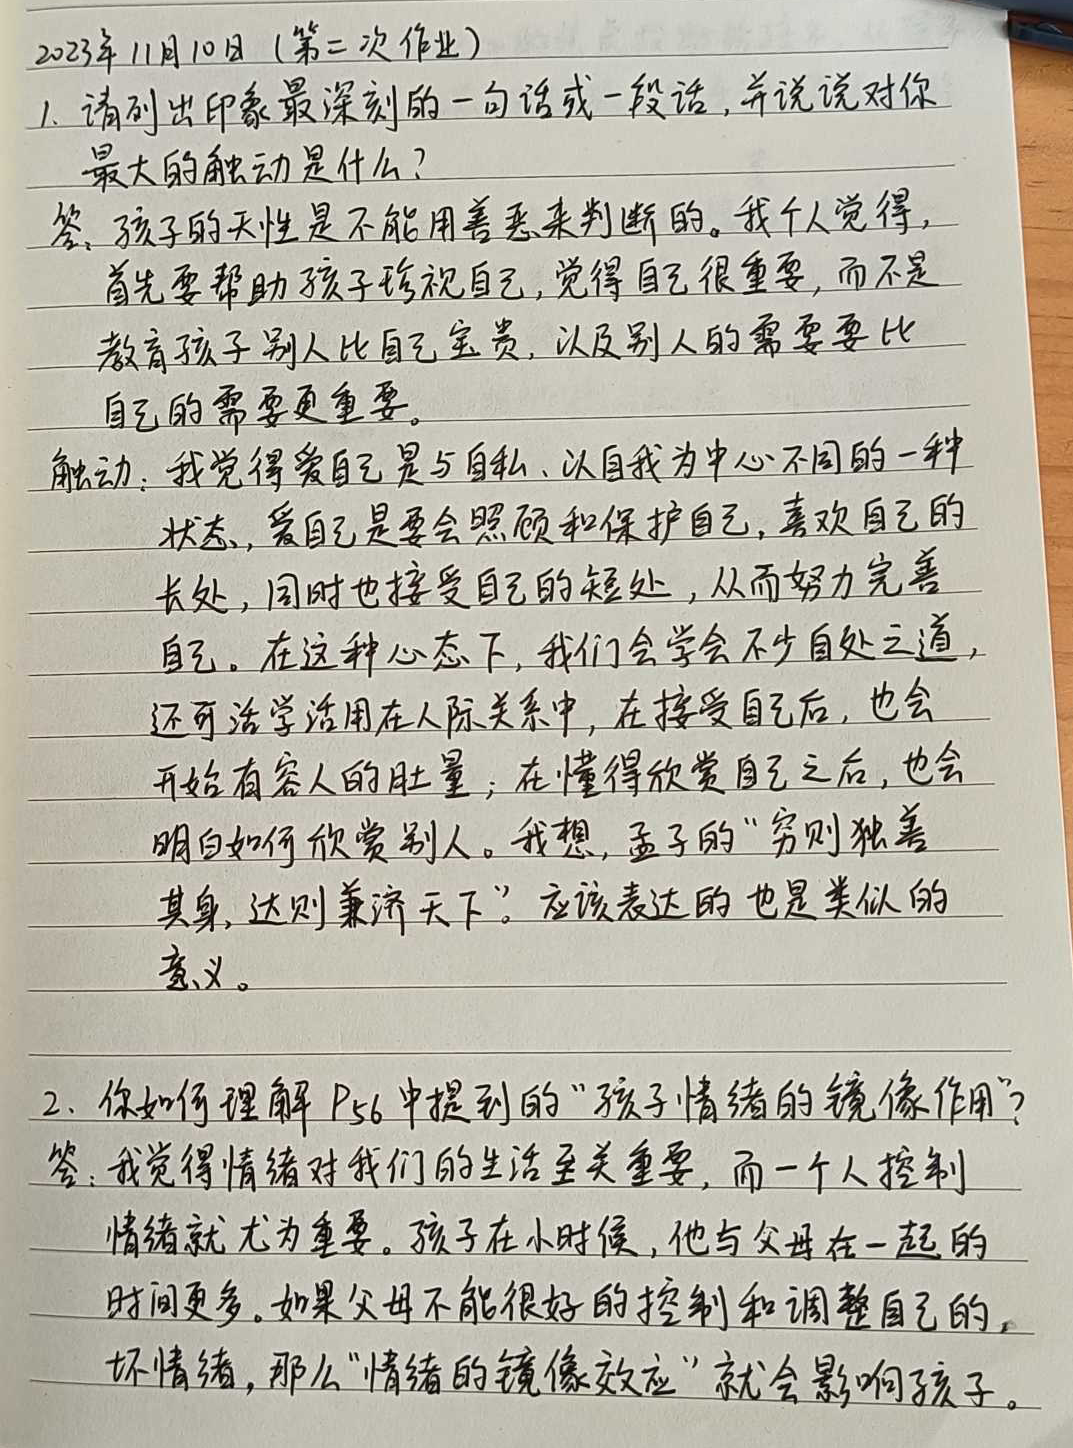 2023年11月10日（第二次作业）
1. 请列出印象最深刻的一句话或一段话，并说说对你
最大的触动是什么？
答：孩子的天性是不能用善恶来判断的。我个人觉得，
首先要帮助孩子珍视自己，觉得自己很重要，而不是
教育孩子别人比自己宝贵，以及别人的需要要比
自己的需要更重要。
触动：我觉得爱自己是与自私、以自我为中心不同的一种
状态，爱自己是要会照顾和保护自己，喜欢自己的
长处，同时也接受自己的短处，从而努力完善
自己。在这种心态下，我们会学会不少自处之道，
还可活学活用在人际关系中，在接受自己后，也会
开始有容人的肚量；在懂得欣赏自己之后，也会
明白如何欣赏别人。我想，孟子的“穷则独善
其身，达则兼济天下”。应该表达的也是类似的
意义。
2、你如何理解P56中提到的“孩子情绪的镜像作用”？
答：我觉得情绪对我们的生活至关重要，而一个人控制
情绪就尤为重要。孩子在小时候，他与父母在一起的
时间更多。如果父母不能很好的控制和调整自己的，
坏情绪，那么“情绪的镜像效应”就会影响孩子。